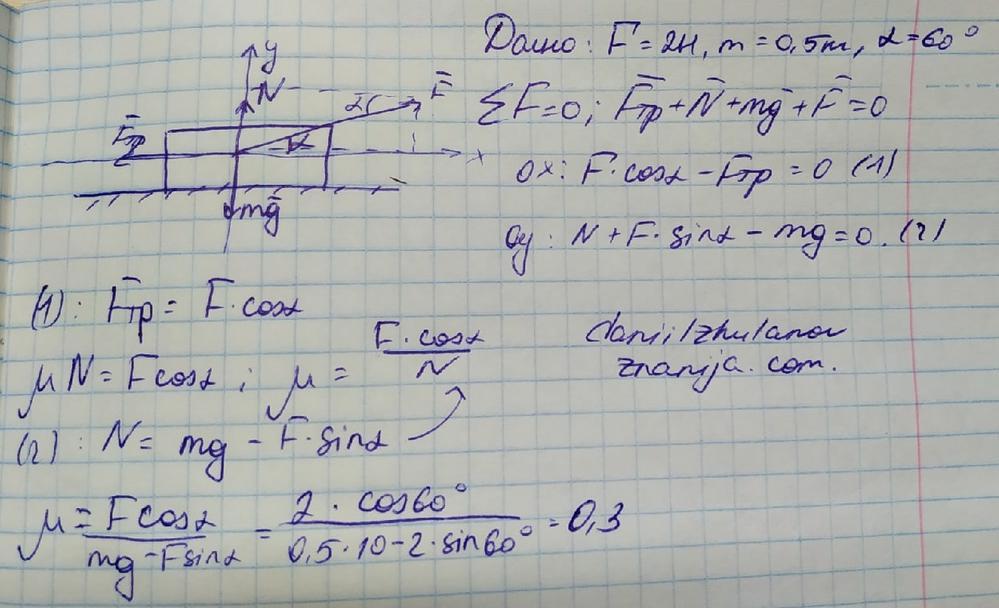 Дано: F = 2Н, m = 0,5т, α = 60°
y
N
α F̄
F̄тр α
x
mḡ
ΣF̄=0; F̄тр + N̄ + mḡ + F̄ = 0
ox: F·cosα - Fтр = 0 (1)
Oy: N + F·sinα - mg = 0. (2)
(1): F̄тр = F·cosα
μN = Fcosα ; μ = F·cosα / N
daniilzhulanov
znanija.com.
(2): N = mg - F·sinα
μ = Fcosα / mg - Fsinα = 2·cos60° / 0,5·10-2·sin60° = 0,3